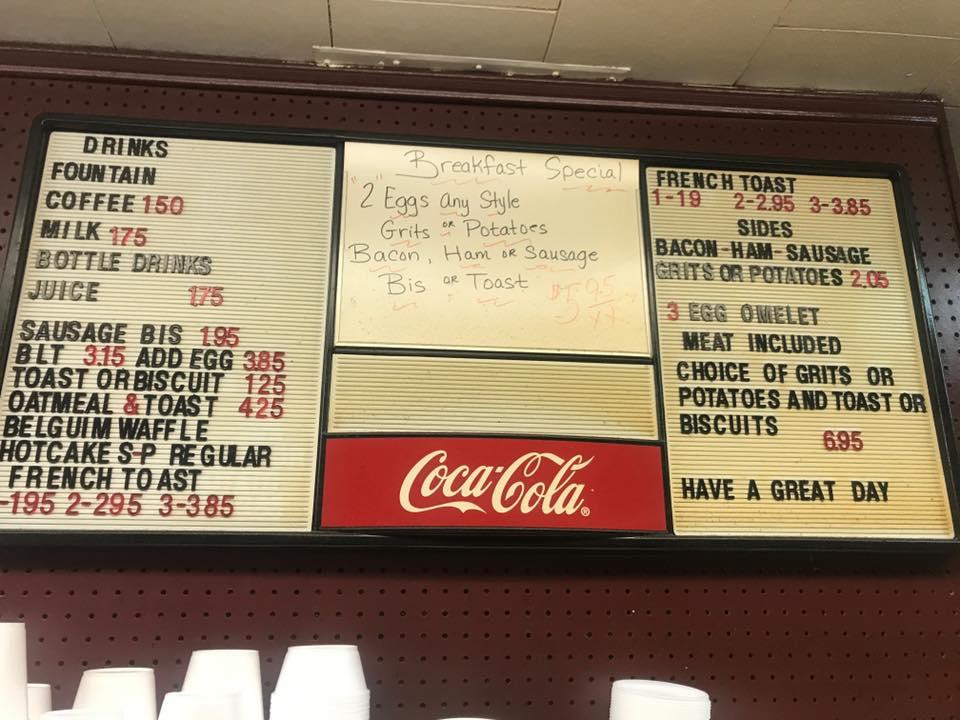 DRINKS
FOUNTAIN
COFFEE 150
MILK 175
BOTTLE DRINKS
JUICE 175
SAUSAGE BIS 1.95
BLT 3.15 ADD EGG 3.85
TOAST OR BISCUIT 125
OATMEAL & TOAST 425
BELGUIM WAFFLE
HOTCAKE S-P REGULAR
FRENCH TOAST
-195 2-295 3-385
Breakfast Special
2 Eggs any Style
Grits or Potatoes
Bacon, Ham or Sausage
Bis or Toast
Coca-Cola®
FRENCH TOAST
1-19 2-2.95 3-3.85
SIDES
BACON-HAM-SAUSAGE
GRITS OR POTATOES 2.05
3 EGG OMELET
MEAT INCLUDED
CHOICE OF GRITS OR
POTATOES AND TOAST OR
BISCUITS 6.95
HAVE A GREAT DAY